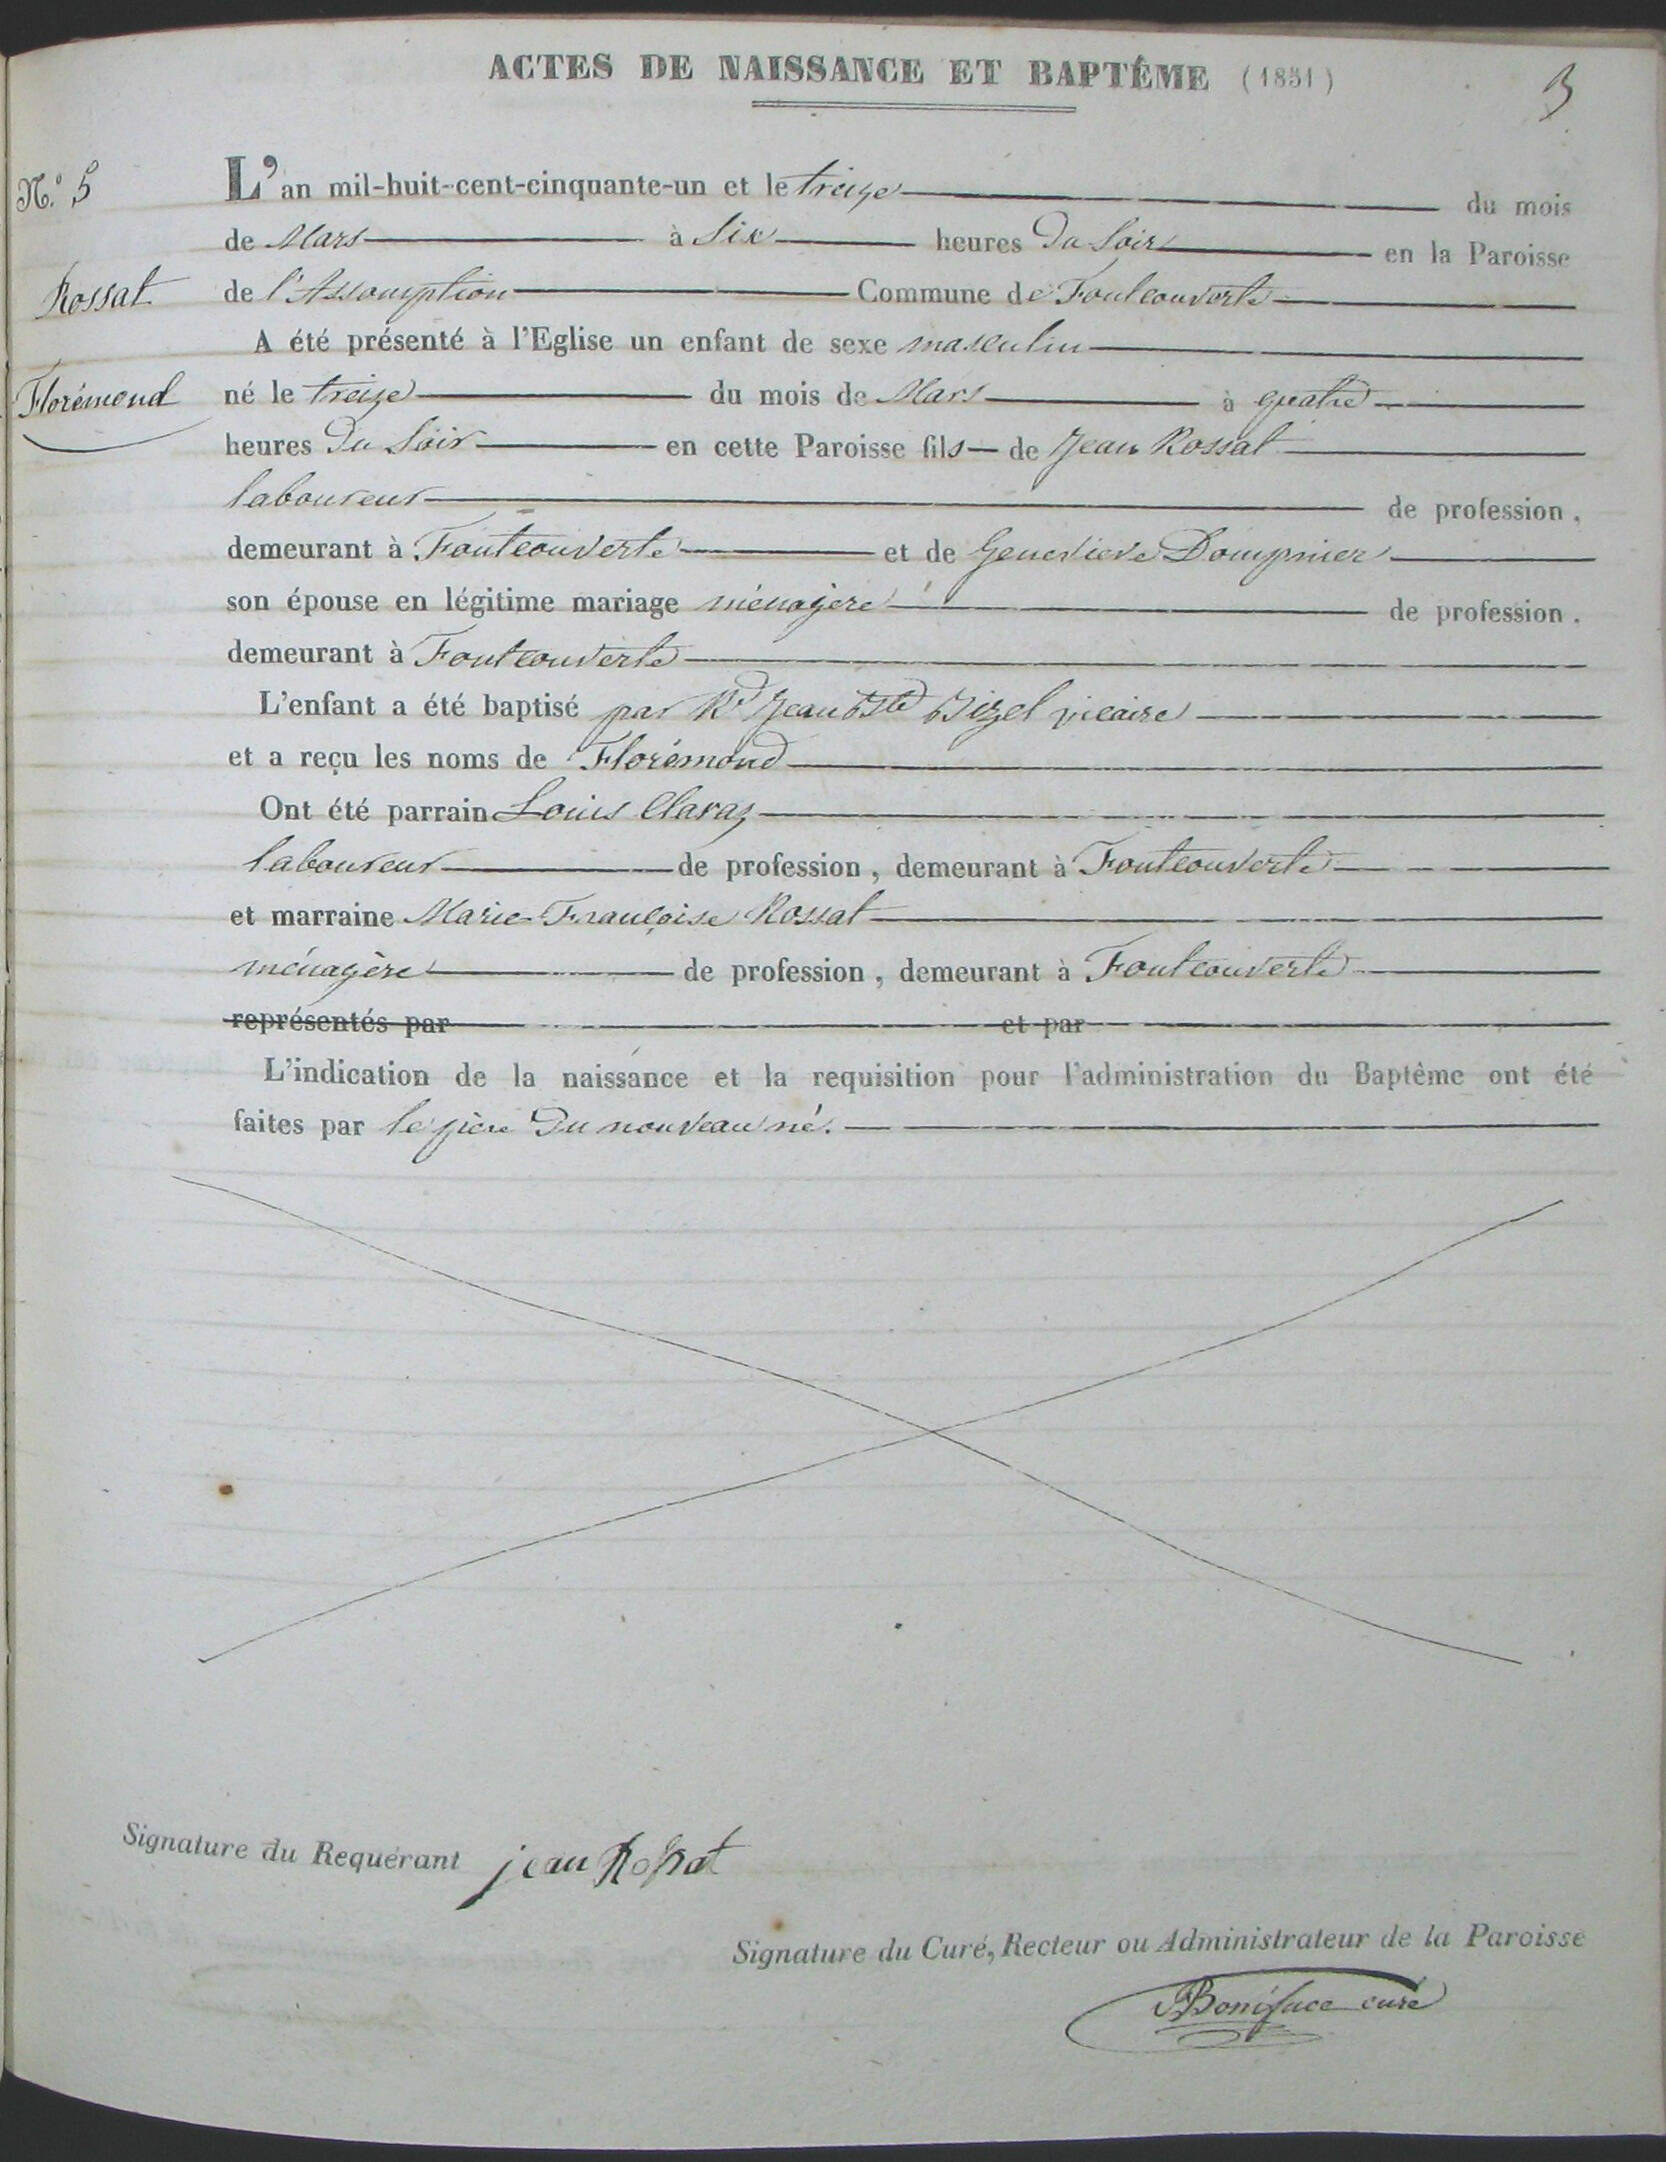 ACTES DE NAISSANCE ET BAPTÊME (1851)
3
N.º 5
L'an mil-huit-cent-cinquante-un et le treize du mois
de Mars à Six heures Du Soir en la Paroisse
Rossat
de l'Assomption Commune de Fontcouverte
A été présenté à l'Eglise un enfant de sexe masculin
Florémond
né le treize du mois de Mars à quatre
heures Du Soir en cette Paroisse fils de Jean Rossat
laboureur de profession,
demeurant à Fontcouverte et de Genevieve Dompnier
son épouse en légitime mariage ménagère de profession.
demeurant à Fontcouverte
L'enfant a été baptisé par Rd Jean Bste Bizel vicaire
et a reçu les noms de Florémond
Ont été parrain Louis Claraz
laboureur de profession, demeurant à Fontcouverte
et marraine Marie-Françoise Rossat
ménagère de profession, demeurant à Fontcouverte
représentés par et par
L'indication de la naissance et la requisition pour l'administration du Baptême ont été
faites par le père Du nouveau né.
Signature du Requérant jean Rossat
Signature du Curé, Recteur ou Administrateur de la Paroisse
Boniface curé